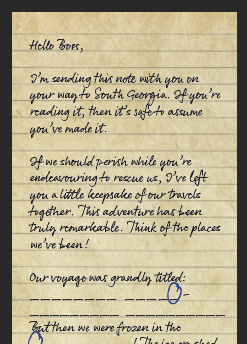 Hello Boss,
I'm sending this note with you on
your way to South Georgia. If you're
reading it, then it's safe to assume
you've made it.
If we should perish while you're
endeavouring to rescue us, I've left
you a little keepsake of our travels
together. This adventure has been
truly remarkable. Think of the places
we've been!
Our voyage was grandly titled:
But then we were frozen in the
! The ice